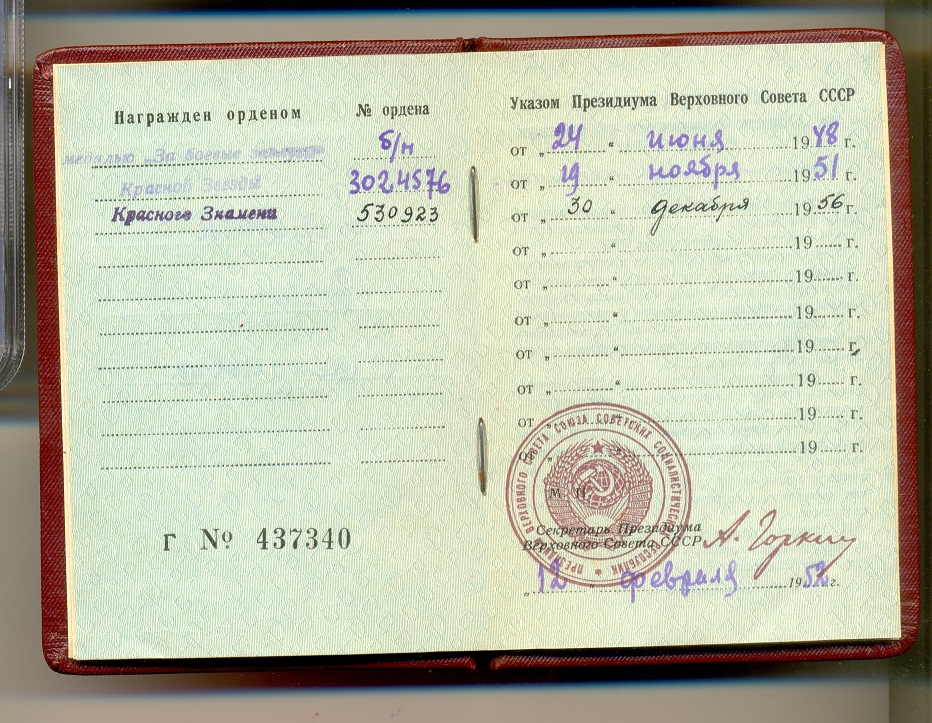 Награжден орденом № ордена
медалью „За боевые заслуги“ б/н
Красной Звезды 3024576
Красного Знамени 530923
Г № 437340
Указом Президиума Верховного Совета СССР
от „ 24 “ июня 1948 г.
от „ 19 “ ноября 1951 г.
от „ 30 “ декабря 1956 г.
от „ “ 19 г.
от „ “ 19 г.
от „ “ 19 г.
от „ “ 19 г.
от „ “ 19 г.
от „ “ 19 г.
от „ “ 19 г.
ПРЕЗИДИУМ ВЕРХОВНОГО СОВЕТА СОЮЗА СОВЕТСКИХ СОЦИАЛИСТИЧЕСКИХ РЕСПУБЛИК
М. П.
Секретарь Президиума
Верховного Совета СССР А. Горкин
„ 12 “ февраля 1952 г.